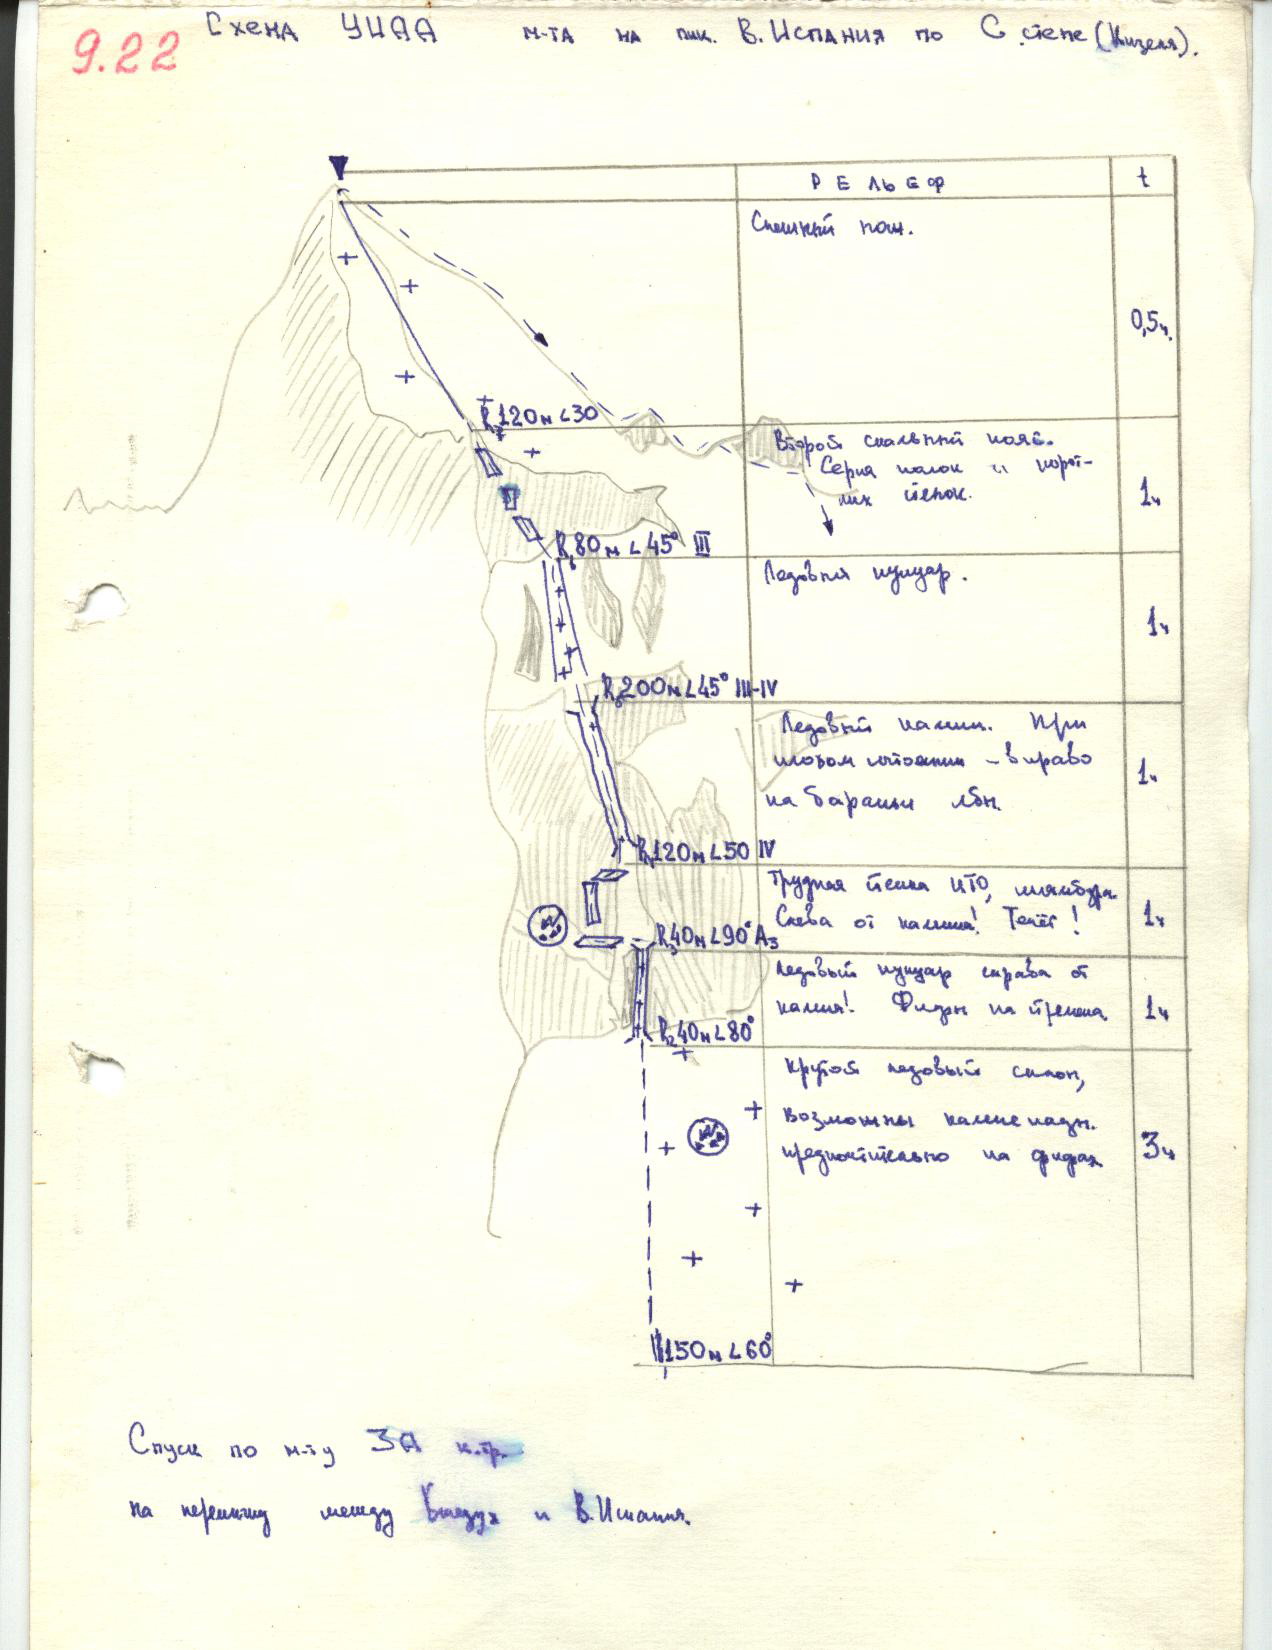 9.22
Схема УИАА м-та на пик. В. Испания по С. стене (Кизеля).
РЕЛЬЕФ t
Снежный
0,5ч.
R7 120м ∠30
Второй скальный пояс.
Серия полок и корот-
ких стенок.
1ч
R6 80м ∠45° III
Ледовый кулуар.
1ч
R5 200м ∠45° III-IV
Ледовый камин. При
плохом состоянии - вправо
на бараньи лбы.
1ч
R4 120м ∠50 IV
Трудная стенка ИТО, шлямбура.
Слева от камина! Течёт!
1ч
R3 40м ∠90° А3
Ледовый кулуар справа от
камня! Фифы на стремена
1ч
R2 40м ∠80°
Крутой ледовый склон,
возможны камнепады.
предпочтительно на фифах
3ч
R1 150м ∠60°
Спуск по м-ту 3А к.тр.
на перемычку между и В. Испания.